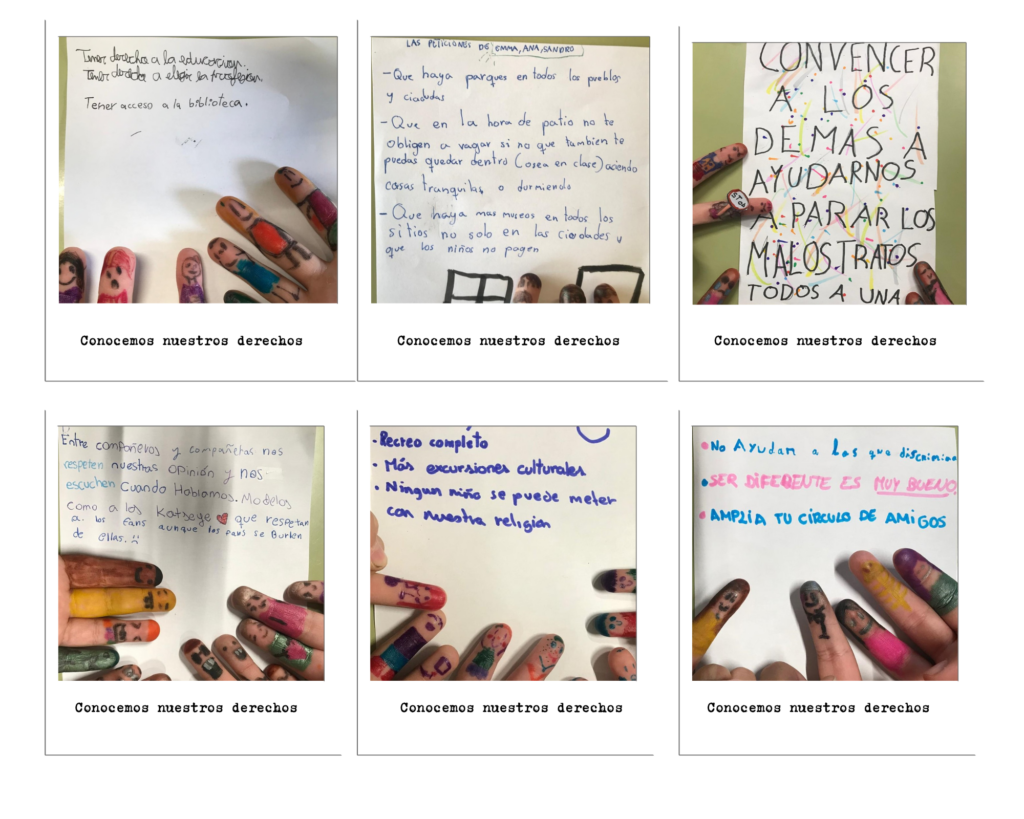 Tener derecho a la educación.
Tener derecho a elegir la profesión
Tener acceso a la biblioteca.
Conocemos nuestros derechos
LAS PETICIONES DE EMMA, ANA, SANDRO
- Que haya parques en todos los pueblos
y ciadudas
- Que en la hora de patio no te
obligen a vagar si no que tambien te
puedas quedar dentro (osea en clase) aciendo
cosas tranquilas o durmiendo
- Que haya mas museos en todos los
sitios no solo en las ciudades y
que los niños no pagen
Conocemos nuestros derechos
CONVENCER
A LOS
DEMAS A
AYUDARNOS
A PARAR LOS
MALOSTRATOS
TODOS A UNA
STOP
Conocemos nuestros derechos
Entre compañeros y compañeras nos
respeten nuestras opinión y nos
escuchen Cuando Hablamos. Modelos
como a las Katseye que respetan
a los fans aunque los fans se Burlen
de ellas.
Conocemos nuestros derechos
• Recreo completo
• Más excursiones culturales
• Ningun niño se puede meter
con nuestra religion
Conocemos nuestros derechos
• No Ayudan a los que discriminan
• SER DIFERENTE ES MUY BUENO.
• AMPLIA TU CÍRCULO DE AMIGOS
Conocemos nuestros derechos